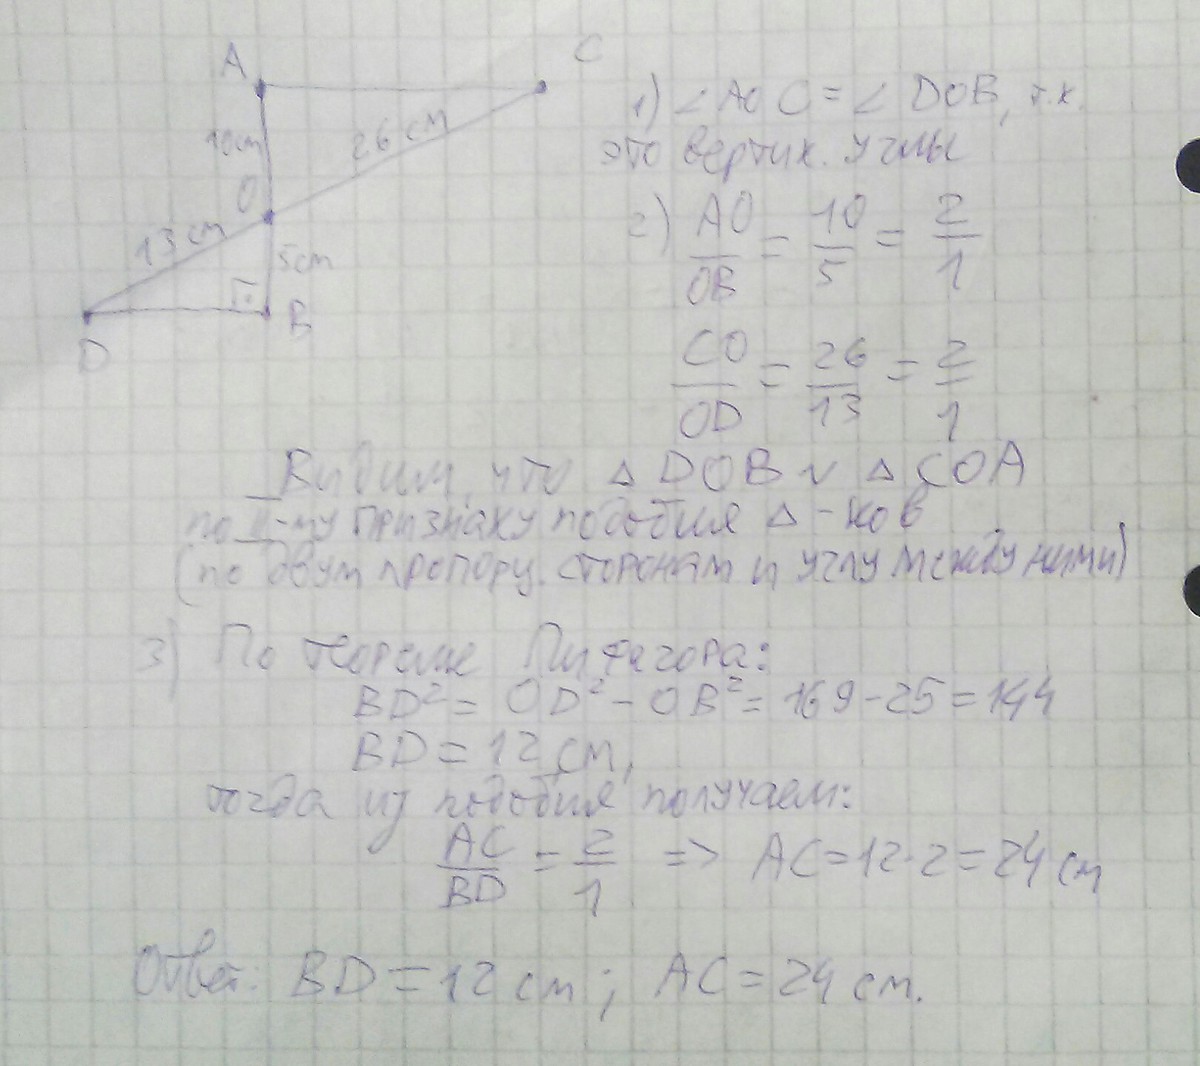 A
C
10cm
26 cm
O
13 cm
5cm
D
B
1) ∠AOC = ∠DOB, т.к.
это вертик. углы
2) AO/OB = 10/5 = 2/1
CO/OD = 26/13 = 2/1
Видим, что △DOB ~ △COA
по II-му признаку подобия △-ков
(по двум пропорц. сторонам и углу между ними)
3) По теореме Пифагора:
BD² = OD² - OB² = 169 - 25 = 144
BD = 12 см,
тогда из подобия получаем:
AC/BD = 2/1 => AC = 12·2 = 24 см
Ответ: BD = 12 см; AC = 24 см.